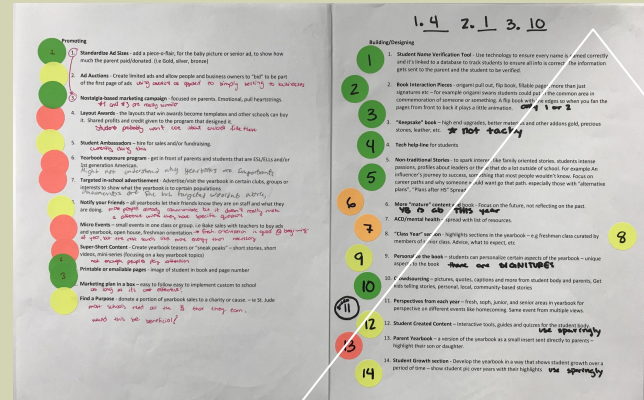 1. 4 2. 1 3. 10
Promoting
1
1. Standardize Ad Sizes - add a piece-o-flair, for the baby picture or senior ad, to show
how much the parent paid/donated. (i.e Gold, silver, bronze)
2. Ad Auctions - Create limited ads and allow people and business owners to "bid" to be part
of the first page of ads. using owners as opposed to simply selling to businesses
3. Nostalgia-based marketing campaign - focused on parents. Emotional, pull heartstrings.
#1 and #3 are really similar
4. Layout Awards - the layouts that win awards become templates and other schools can buy
it. Shared profits and credit given to the program that designed it.
Students probably won't care about awards like these
5. Student Ambassadors - hire for sales and/or fundraising.
currently doing this
6. Yearbook exposure program - get in front of parents and students that are ISL/ELLs and/or
1st generation American.
Might not understand why yearbooks are important
Targeted in-school advertisement - Advertise/visit the yearbook in certain clubs, groups or
interests to show what the yearbook is to certain populations
Notify your Friends - all yearbooks let their friends know they are on staff and what they
are doing.
Micro Events - small events in one class or group. I.e Bake sales with teachers to buy ads
and yearbook, open house, freshmen orientation.
Super-Short Content - Create yearbook trailers or "sneak peaks" - short stories, short
videos, mini-series (focusing on a key yearbook topics)
not enough people pay attention
Printable or emailable pages - image of student in book and page number
3
Marketing plan in a box - easy to follow easy to implement custom to school
as long as it's cost effective!
Find a Purpose - donate a portion of yearbook sales to a charity or cause. - ie St. Jude
most schools need all the $ that they earn.
would this be beneficial?
Building/Designing
1
1. Student Name Verification Tool - Use technology to ensure every name is spelled correctly
and it's linked to a database to track students to ensure all info is correct. The information
gets sent to the parent and the student to be verified.
2
2. Book Interaction Pieces - origami pull out, flip book, fillable pages, more than just
signatures etc - for example origami swans students could put in the common area in
commemoration of someone or something. A flip book with the edges so when you fan the
pages from front to back it plays a little animation. only 1 or 2
3
3. "Keepsake" book - high end upgrades, better materials and other addons gold, precious
stones, leather, etc. * not tacky
4
4. Tech help-line for students
5
5. Non-traditional Stories - to spark interest like family oriented stories. students intense
passions, profiles about leaders or those that do a lot outside of school. For example An
influencer's journey to success, something that most people wouldn't know. Focus on
career paths and why someone should want go that path. especially those with "alternative
plans", "Plans after HS" Spread
6
6. More "mature" content in book - Focus on the future, not reflecting on the past.
YB IS GD THIS year
7
7. ACD/mental health - spread with list of resources.
8
8. "Class Year" section - highlights sections in the yearbook - e.g freshman class curated by
members of your class. Advice, what to expect, etc
9
9. Personalize the book - students can personalize certain aspects of the yearbook - unique
aspects to the book these are SIGNATURES
10
10. Crowdsourcing - pictures, quotes, captions and more from student body and parents. Get
kids telling stories, personal, local, community-based stories
11
11. Perspectives from each year - fresh, soph, junior, and senior years in yearbook for
perspective on different events like homecoming. Same event from multiple views.
12
12. Student Created Content - Interactive tools, guides and quizzes for the student body.
use sparingly
13
13. Parent Yearbook - a version of the yearbook as a small insert sent directly to parents -
highlight their son or daughter.
14
14. Student Growth section - Develop the yearbook in a way that shows student growth over a
period of time - show student pic over years with their highlights use sparingly